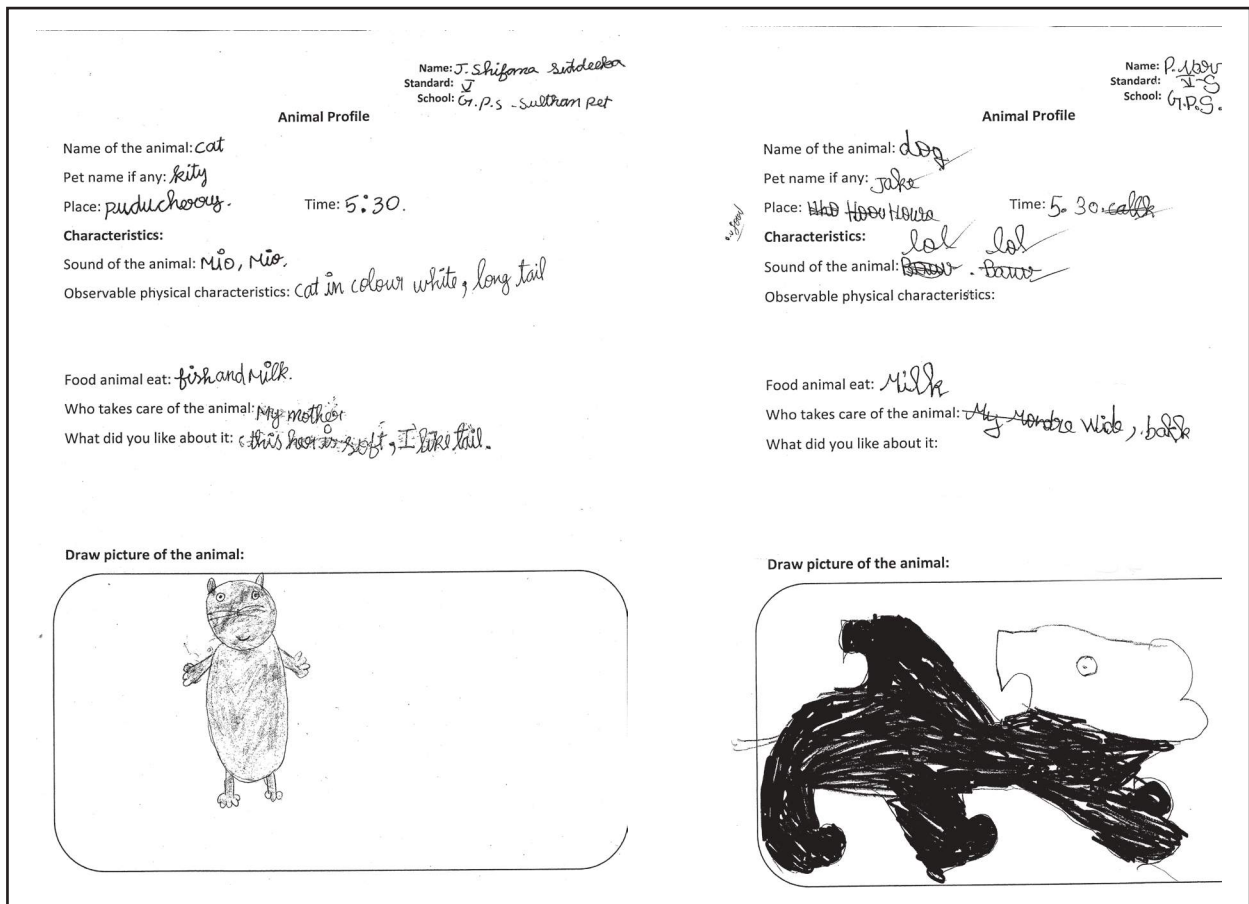 Name: J. Shifana
Standard: V
School: G.P.S - Sulthan Pet
Animal Profile
Name of the animal: cat
Pet name if any: kity
Place: puducherry. Time: 5:30.
Characteristics:
Sound of the animal: Mio, Mio.
Observable physical characteristics: cat in colour white, long tail
Food animal eat: fish and Milk.
Who takes care of the animal: My mother
What did you like about it: this her is soft, I like tail.
Draw picture of the animal:
Name: P.
Standard: V-S
School: G.P.S.
Animal Profile
Name of the animal: dog
Pet name if any: Jake
Place: House Time: 5.30.
Characteristics:
lol lol
Sound of the animal: Bauv
Observable physical characteristics:
Food animal eat: Milk
Who takes care of the animal: My
What did you like about it:
Draw picture of the animal: